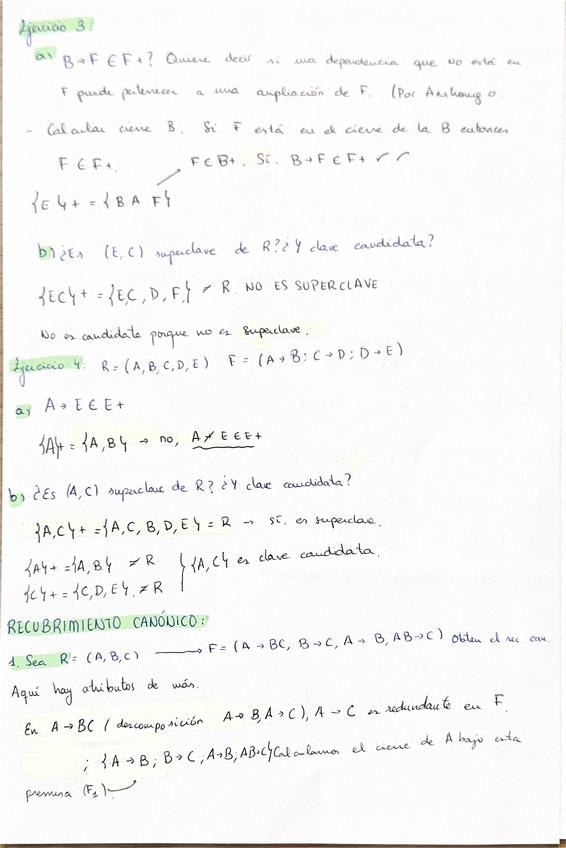 Ejercicio 3:
a) B → F ∈ F+? Quiere decir si una dependencia que no está en
F puede pertenecer a una ampliación de F. (Por
- Calcular cierre B. Si F está en el cierre de la B entonces
F ∈ F+. F ∈ B+. Sí. B → F ∈ F+ ✓ ✓
{E}+ = {B A F}
b) ¿Es (E, C) superclave de R? ¿Y clave candidata?
{EC}+ = {E,C, D, F,} ≠ R. NO ES SUPERCLAVE
No es candidata porque no es superclave.
Ejercicio 4: R = (A, B, C, D, E) F = (A → B; C → D; D → E)
a) A → E ∈ E+
{A}+ = {A, B} → no, A ↛ E ∈ E+
b) ¿Es (A, C) superclave de R? ¿Y clave candidata?
{A, C}+ = {A, C, B, D, E} = R → sí. es superclave.
{A}+ = {A, B} ≠ R } {A, C} es clave candidata.
{C}+ = {C, D, E}. ≠ R
RECUBRIMIENTO CANÓNICO:
1. Sea R = (A, B, C) → F = (A → BC, B → C, A → B, AB → C) Obten el rec. can.
Aquí hay atributos de más.
En A → BC (descomposición A → B, A → C), A → C es redundante en F.
; {A → B; B → C, A → B; AB → C} Calculamos el cierre de A bajo esta
premisa (F1)